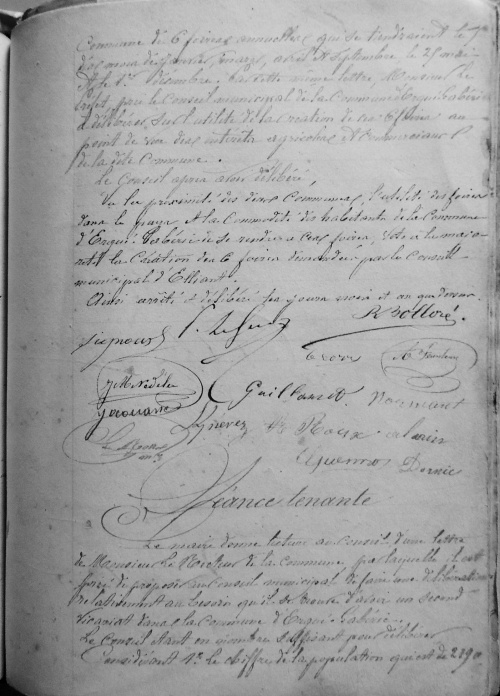 Commune de 6 foires annuelles qui se tiendraient le 7
des mois de Janvier, mars, avril et Septembre le 25 mai
et le 1er Décembre; par cette même lettre, Monsieur le
Préfet, prie le Conseil municipal de la Commune d'Ergué-Gabéric
à délibérer sur l'utilité de la création de ces 6 foires au
point de vue des intérêts agricoles et commerciaux
de la dite Commune.
Le Conseil après avoir délibéré,
Vu la proximité des deux Communes, l'utilité des foires
dans le pays et la commodité des habitants de la Commune
d'Ergué-Gabéric de se rendre à ces foires, vote à la majo
rité la Création des 6 foires demandées par le Conseil
municipal d'Elliant.
Ainsi arrêté et délibéré les jour mois et an que dessus.
R Bolloré.
Guillamet
Le Roux
Séance tenante
Le maire donne lecture au Conseil d'une lettre
de Monsieur le Recteur de la Commune, par laquelle il est
prié de proposer au Conseil municipal de faire une délibération
relativement au besoin qu'il se trouve d'avoir un second
vicariat dans la Commune d'Ergué-Gabéric.
Le Conseil étant en nombre suffisant pour délibérer
Considérant 1º le chiffre de la population qui est de 2290